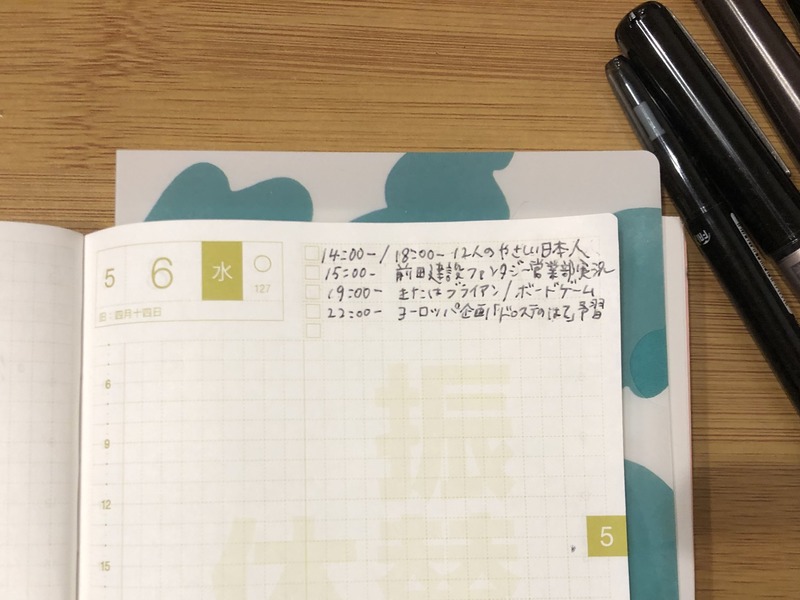 5 6 水
127
旧：四月十四日
14:00-/18:00- 12人のやさしい日本人、
15:00- 前田建設ファンタジー営業部実況
19:00- またはブライアン/ボードゲーム
22:00- ヨーロッパ企画「ドロステのはて」予習
6
9
12
15
振替
休
5